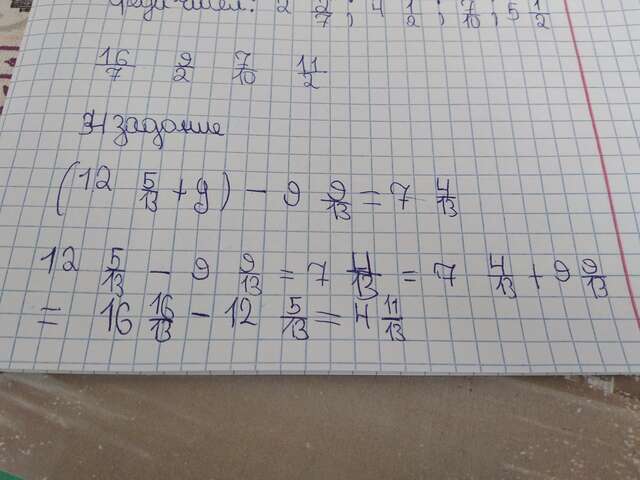 среди чисел: 2 2/7; 4 1/2; 7/10; 5 1/2
16/7 9/2 7/10 11/2
34 задание
(12 5/13 + y) - 9 9/13 = 7 4/13
12 5/13 - 9 9/13 = 7 4/13 = 7 4/13 + 9 9/13
= 16 16/13 - 12 5/13 = 4 11/13